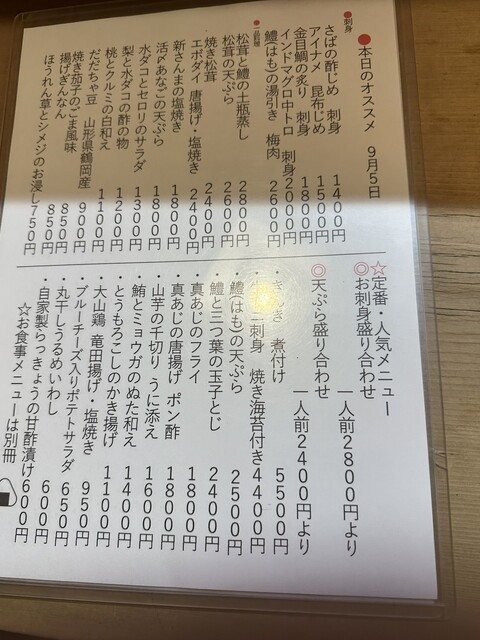 ●本日のオススメ　9月5日
●刺身
さばの酢じめ　刺身　1400円
アイナメ　昆布じめ　1500円
金目鯛の炙り　刺身　1800円
インドマグロ中トロ　刺身2000円
鱧(はも)の湯引き　梅肉　2600円
●一品料理
松茸と鱧の土瓶蒸し　2800円
松茸の天ぷら　2600円
焼き松茸　2400円
エボダイ　唐揚げ・塩焼き　2400円
新さんまの塩焼き　1800円
活〆あなごの天ぷら　1800円
水ダコとセロリのサラダ　1300円
梨と水ダコの酢の物　1200円
桃とクルミの白和え　1100円
だだちゃ豆　山形県鶴岡産　900円
焼き茄子のごま風味　850円
揚げぎんなん　850円
ほうれん草とシメジのお浸し750円
☆定番・人気メニュー
◎お刺身盛り合わせ　一人前2800円より
◎天ぷら盛り合わせ　一人前2400円より
・きんき　煮付け　5500円
刺身　焼き海苔付き4400円
・鱧(はも)の天ぷら　2500円
・鱧と三つ葉の玉子とじ　2400円
・真あじのフライ　1800円
・真あじの唐揚げ　ポン酢　1800円
・山芋の千切り　うに添え　1600円
・鮪とミョウガのぬた和え　1400円
・とうもろこしのかき揚げ　1100円
・大山鶏　竜田揚げ・塩焼き　950円
・ブルーチーズ入りポテトサラダ　650円
・丸干しうるめいわし　600円
・自家製らっきょうの甘酢漬け600円
☆お食事メニューは別冊